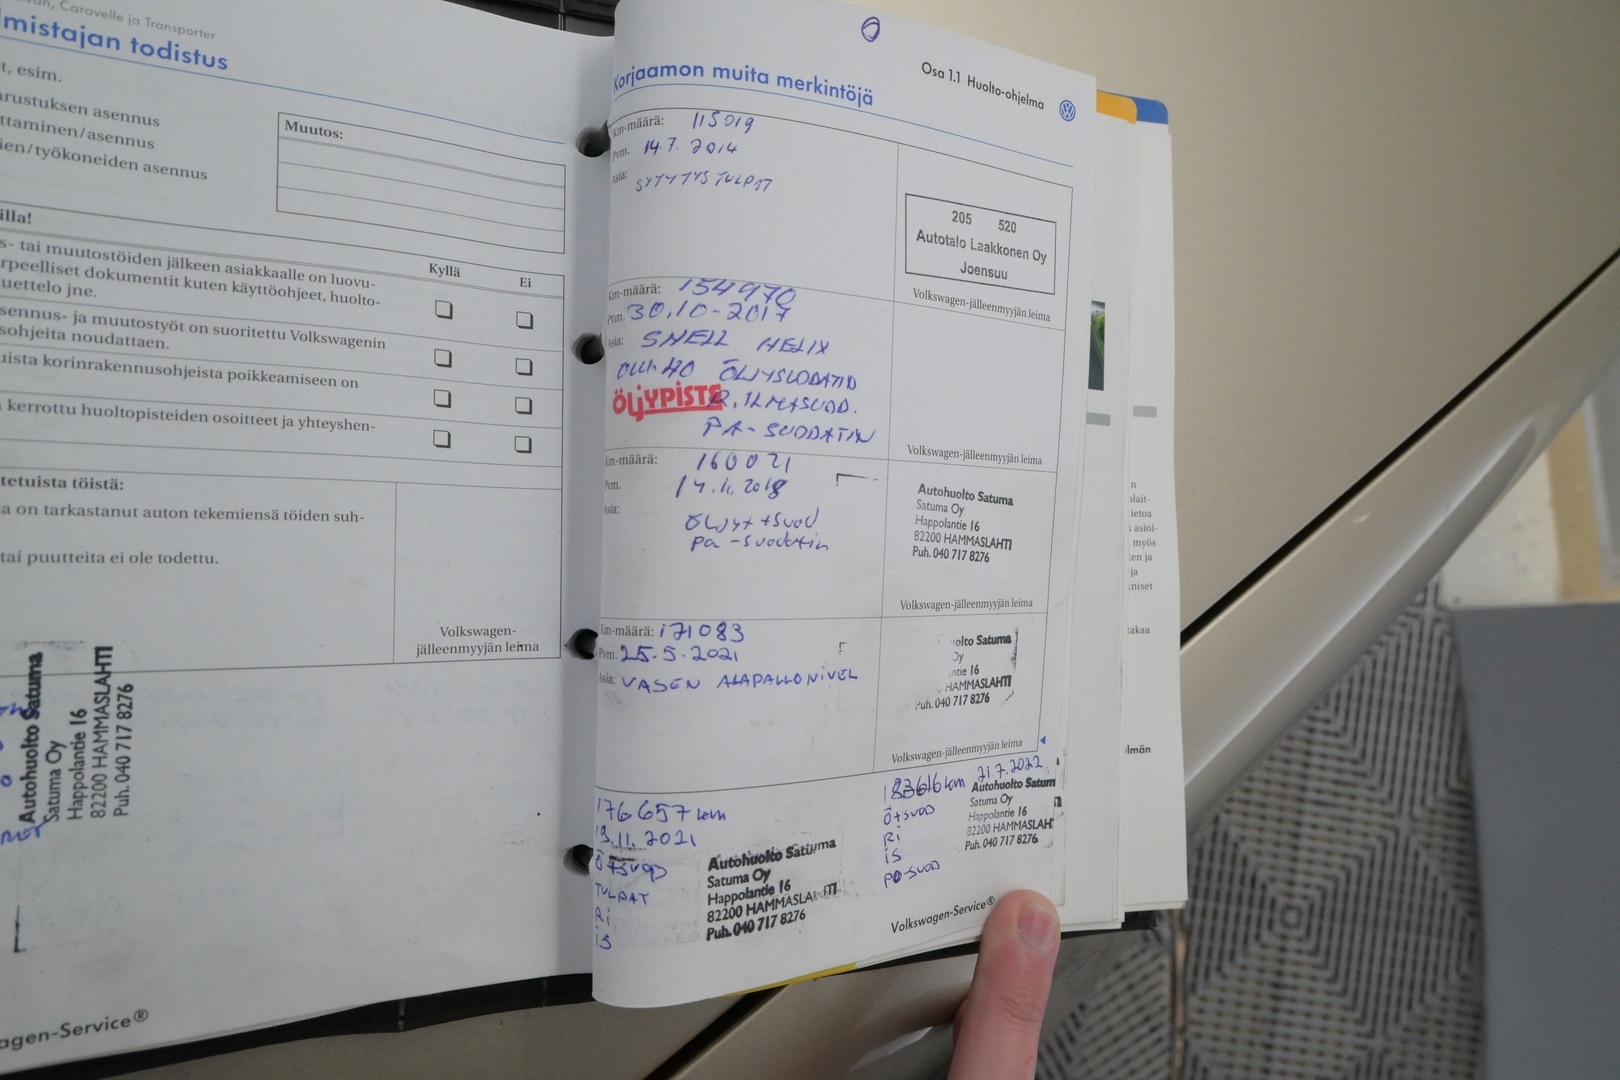 Caravelle ja Transporter
mistajan todistus
t, esim.
arustuksen asennus
ttaminen/asennus
ien/työkoneiden asennus
Muutos:
illa!
s- tai muutostöiden jälkeen asiakkaalle on luovu-
rpeelliset dokumentit kuten käyttöohjeet, huolto-
uettelo jne.
Kyllä
Ei
sennus- ja muutostyöt on suoritettu Volkswagenin
sohjeita noudattaen.
uista korinrakennusohjeista poikkeamiseen on
kerrottu huoltopisteiden osoitteet ja yhteyshen-
tetuista töistä:
a on tarkastanut auton tekemiensä töiden suh-
tai puutteita ei ole todettu.
Volkswagen-
jälleenmyyjän leima
Autohuolto Satuma
Satuma Oy
Happolantie 16
82200 HAMMASLAHTI
Puh. 040 717 8276
agen-Service®
Osa 1.1 Huolto-ohjelma
Korjaamon muita merkintöjä
Km-määrä: 115019
Pvm. 14.7. 2014
Asia: SYTYTYSTULPAT
205 520
Autotalo Laakkonen Oy
Joensuu
Volkswagen-jälleenmyyjän leima
Km-määrä: 154970
Pvm. 30.10-2017
Asia: SHELL HELIX
40 ÖLJYSUODATIN
ÖLJYPISTE R.ILMASUOD.
PA-SUODATIN
Volkswagen-jälleenmyyjän leima
Km-määrä: 160021
Pvm. 14.11.2018
Asia: ÖLJYT+SUOD
PA-SUODATIN
Autohuolto Satuma
Satuma Oy
Happolantie 16
82200 HAMMASLAHTI
Puh. 040 717 8276
Volkswagen-jälleenmyyjän leima
Km-määrä: 171083
Pvm. 25.5.2021
Asia: VASEN ALAPALLONIVEL
olto Satuma
Oy
ntie 16
HAMMASLAHTI
Puh. 040 717 8276
Volkswagen-jälleenmyyjän leima
176657km
19.11.2021
Ö+SUOD
TULPAT
Ri
iS
Autohuolto Satuma
Satuma Oy
Happolantie 16
82200 HAMMASLAHTI
Puh. 040 717 8276
183616km 21.7.2022
Ö+SUOD
Ri
iS
PA-SUOD
Autohuolto Satum
Satuma Oy
Happolantie 16
82200 HAMMASLAHT
Puh. 040 717 8276
Volkswagen-Service®
n
lait-
ietoa
asioi-
myös
en ja
ja
kniset
takaa
elmän